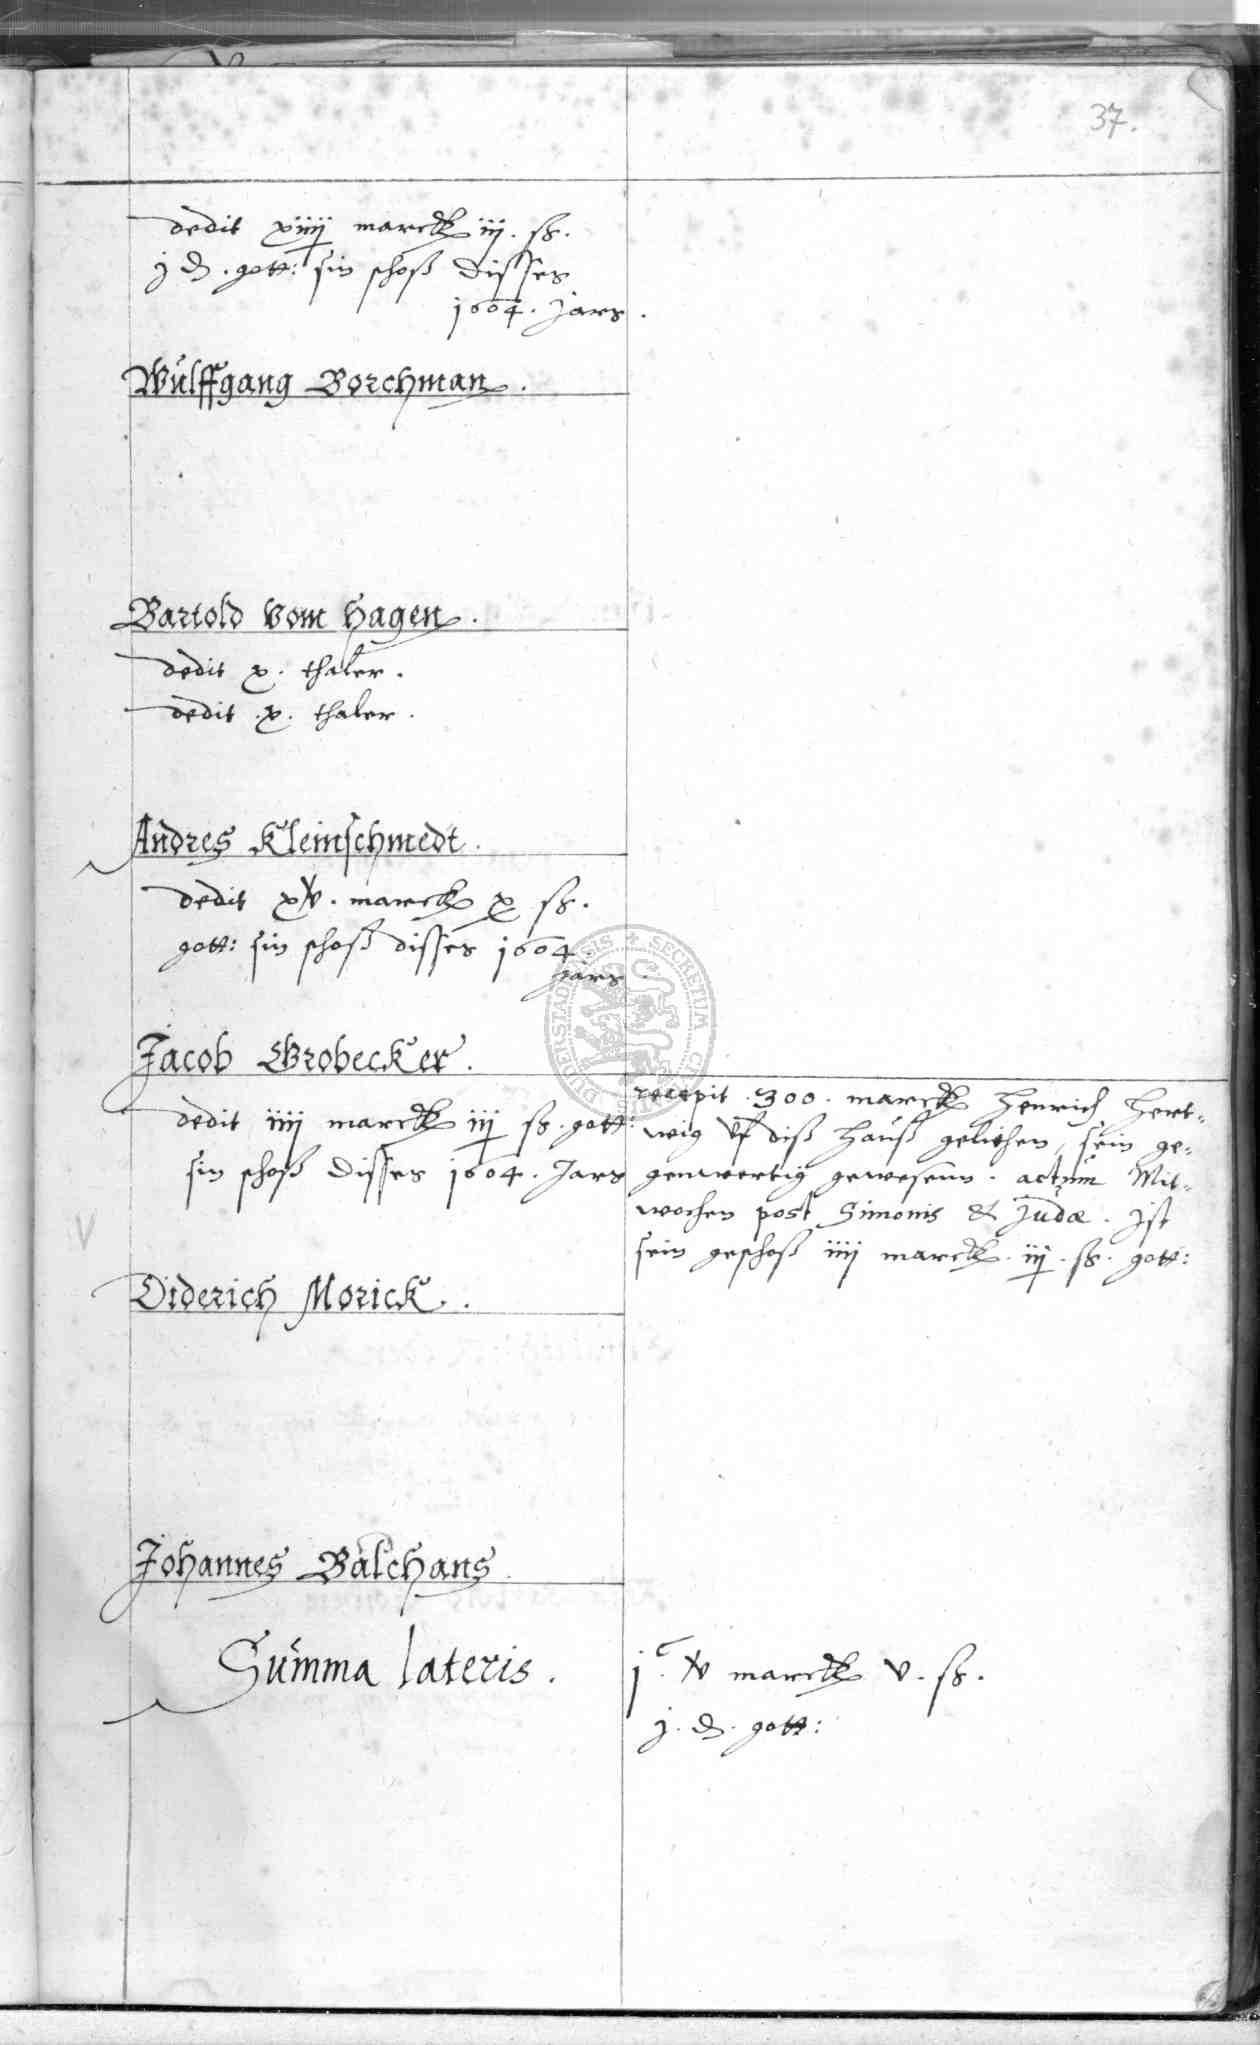 37.
dedit xiiij marck iij. ß.
j ₰. gott: sin schoß disses
1604. Jars.
Wulffgang Borchman.
Bartold vom Hagen.
dedit x. thaler.
dedit .x. thaler.
Andres Kleinschmedt.
dedit xv. marck x ß.
gott: sin schoß disses 1604
Jars.
Jacob Grobecker.
dedit iiij marck iij ß. gott:
sin schoß disses 1604. Jars
recepit .300. marck Henrich Hert-
wig vf diß hauß gelichen, sein ge-
genwertig gewesenn. actum Mit-
wochen post Simonis & Judæ. Ist
sein geschoß iiij marck. iij. ß. gott:
V
Diderich Morick.
Johannes Balchans.
Summa lateris.
jᶜ. v marck v. ß.
j. ₰. gott:
SECRETUM